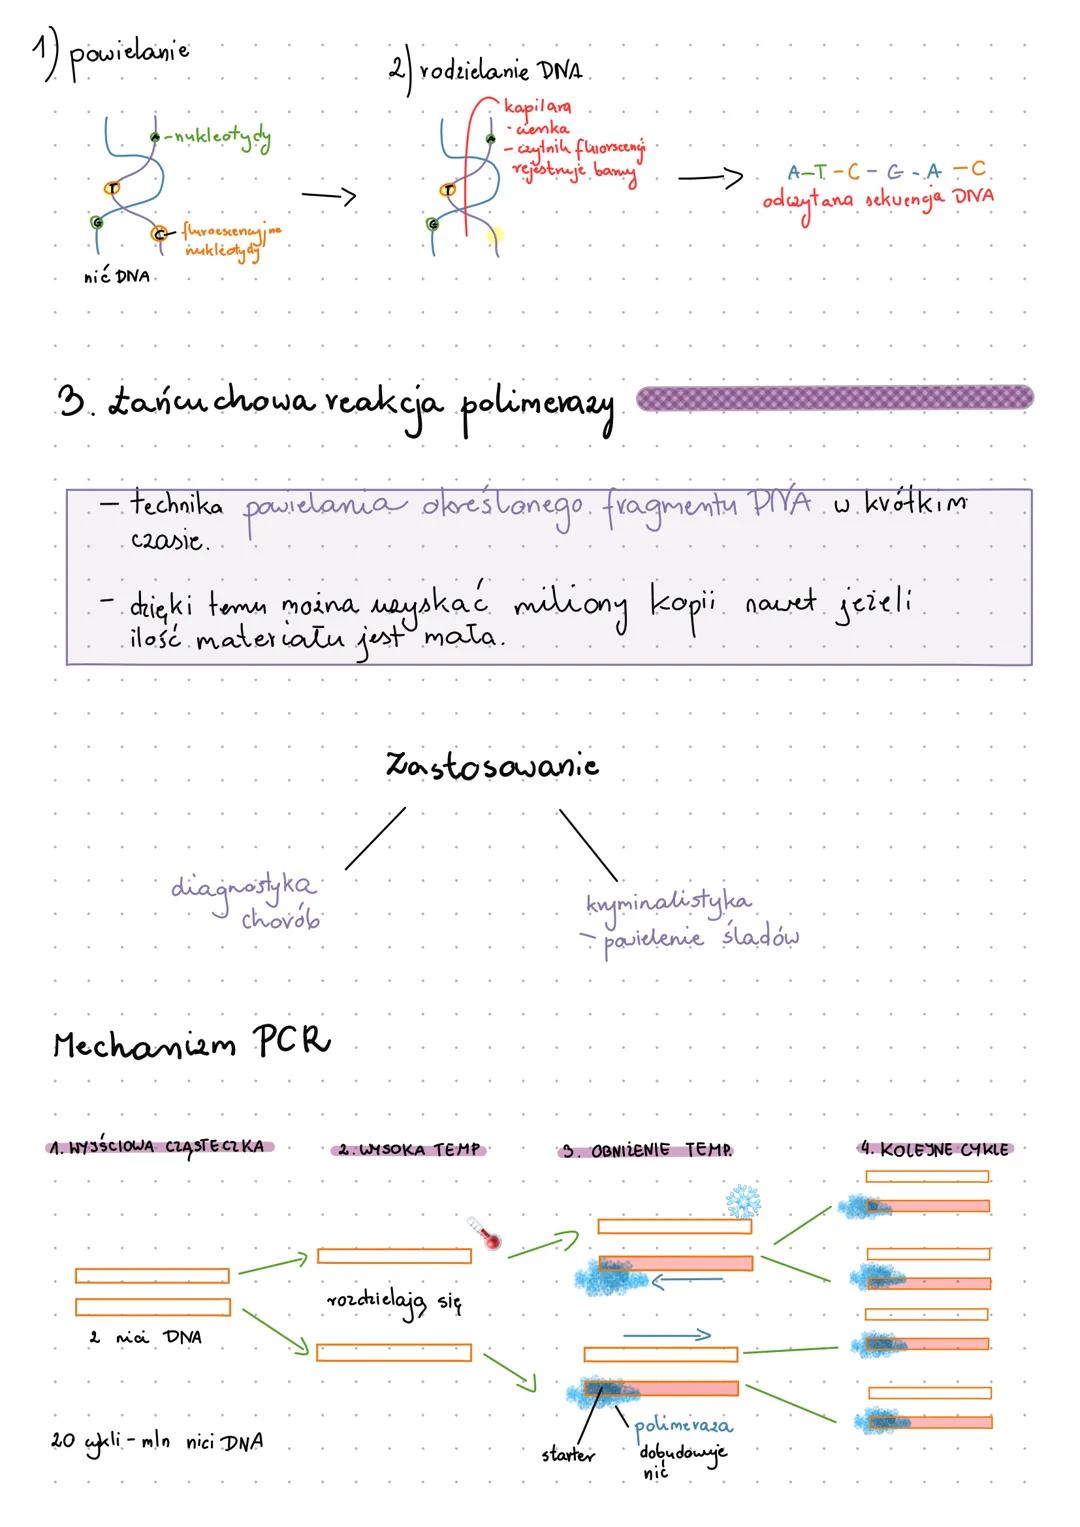 1) powielanie
2) rodzielanie DNA
A
-nukleotydy
T
G
C
- fluroescencyjne
nukleotydy
nić DNA
kapilara
- cienka
- czytnik fluorscencji
rejestruje barwy
A
T
G
A-T-C-G-A-C
odczytana sekwencja DNA
3. Łańcuchowa reakcja polimerazy
- technika powielania określonego fragmentu DNA w krótkim
czasie.
- dzięki temu można uzyskać miliony kopii nawet jeżeli
ilość materiału jest mała.
Zastosowanie
diagnostyka
chorób
kryminalistyka
- powielenie śladów
Mechanizm PCR
1. WYJŚCIOWA CZĄSTECZKA
2. WYSOKA TEMP
3. OBNIŻENIE TEMP.
4. KOLEJNE CYKLE
2 nici DNA
rozdzielają się
starter
polimeraza
dobudowuje
nić
20 cykli - mln nici DNA